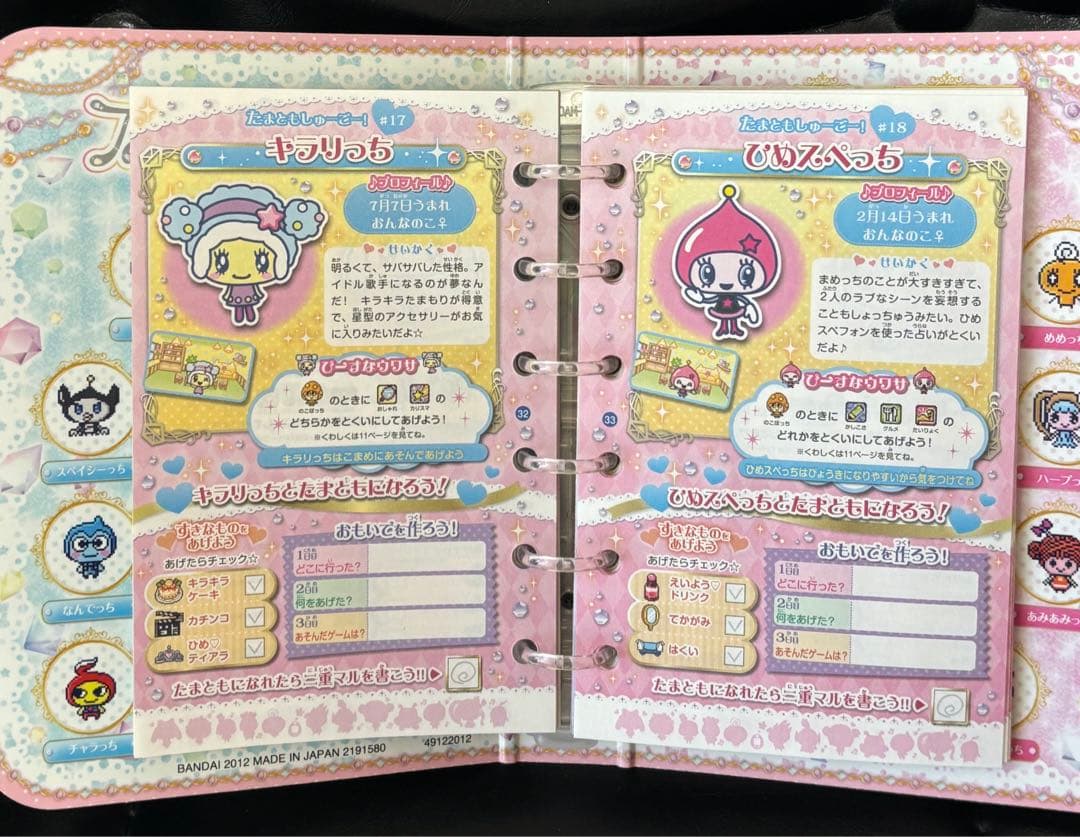 たまともしゅーごー! #17
キラりっち
♪プロフィール♪
7月7日うまれ
おんなのこ♀
せいかく
明るくて、サバサバした性格。ア
イドル歌手になるのが夢なん
だ! キラキラたまもりが得意
で、星型のアクセサリーがお気
に入りみたいだよ☆
ひーすなウワサ
のこぼっち
のときに
おしゃれ
カリスマ
の
どちらかをとくいにしてあげよう!
※くわしくは11ページを見てね。
キラりっちはこまめにあそんであげよう
32
キラりっちとたまともになろう!
すきなものを
あげよう
あげたらチェック☆
キラキラ
ケーキ
カチンコ
ひめ♡
ティアラ
おもいでを作ろう!
1日目
どこに行った?
2日目
何をあげた?
3日目
あそんだゲームは?
たまともになれたら二重マルを書こう!!
BANDAI 2012 MADE IN JAPAN 2191580 49122012
たまともしゅーごー! #18
ひめスペっち
♪プロフィール♪
2月14日うまれ
おんなのこ♀
せいかく
まめっちのことが大すきすぎて、
2人のラブなシーンを妄想する
こともしょっちゅうみたい。ひめ
スペフォンを使った占いがとくい
だよ♪
ひーすなウワサ
のこぼっち
のときに
かしこさ
グルメ
たいりょく
の
どれかをとくいにしてあげよう!
※くわしくは11ページを見てね。
ひめスペっちはびょうきになりやすいから気をつけてね
33
ひめスペっちとたまともになろう!
すきなものを
あげよう
あげたらチェック☆
えいよう♡
ドリンク
てかがみ
はくい
おもいでを作ろう!
1日目
どこに行った?
2日目
何をあげた?
3日目
あそんだゲームは?
たまともになれたら二重マルを書こう!!
スペイシーっち
なんでっち
チャラっち
めめっち
ハープっ
あみあみっ